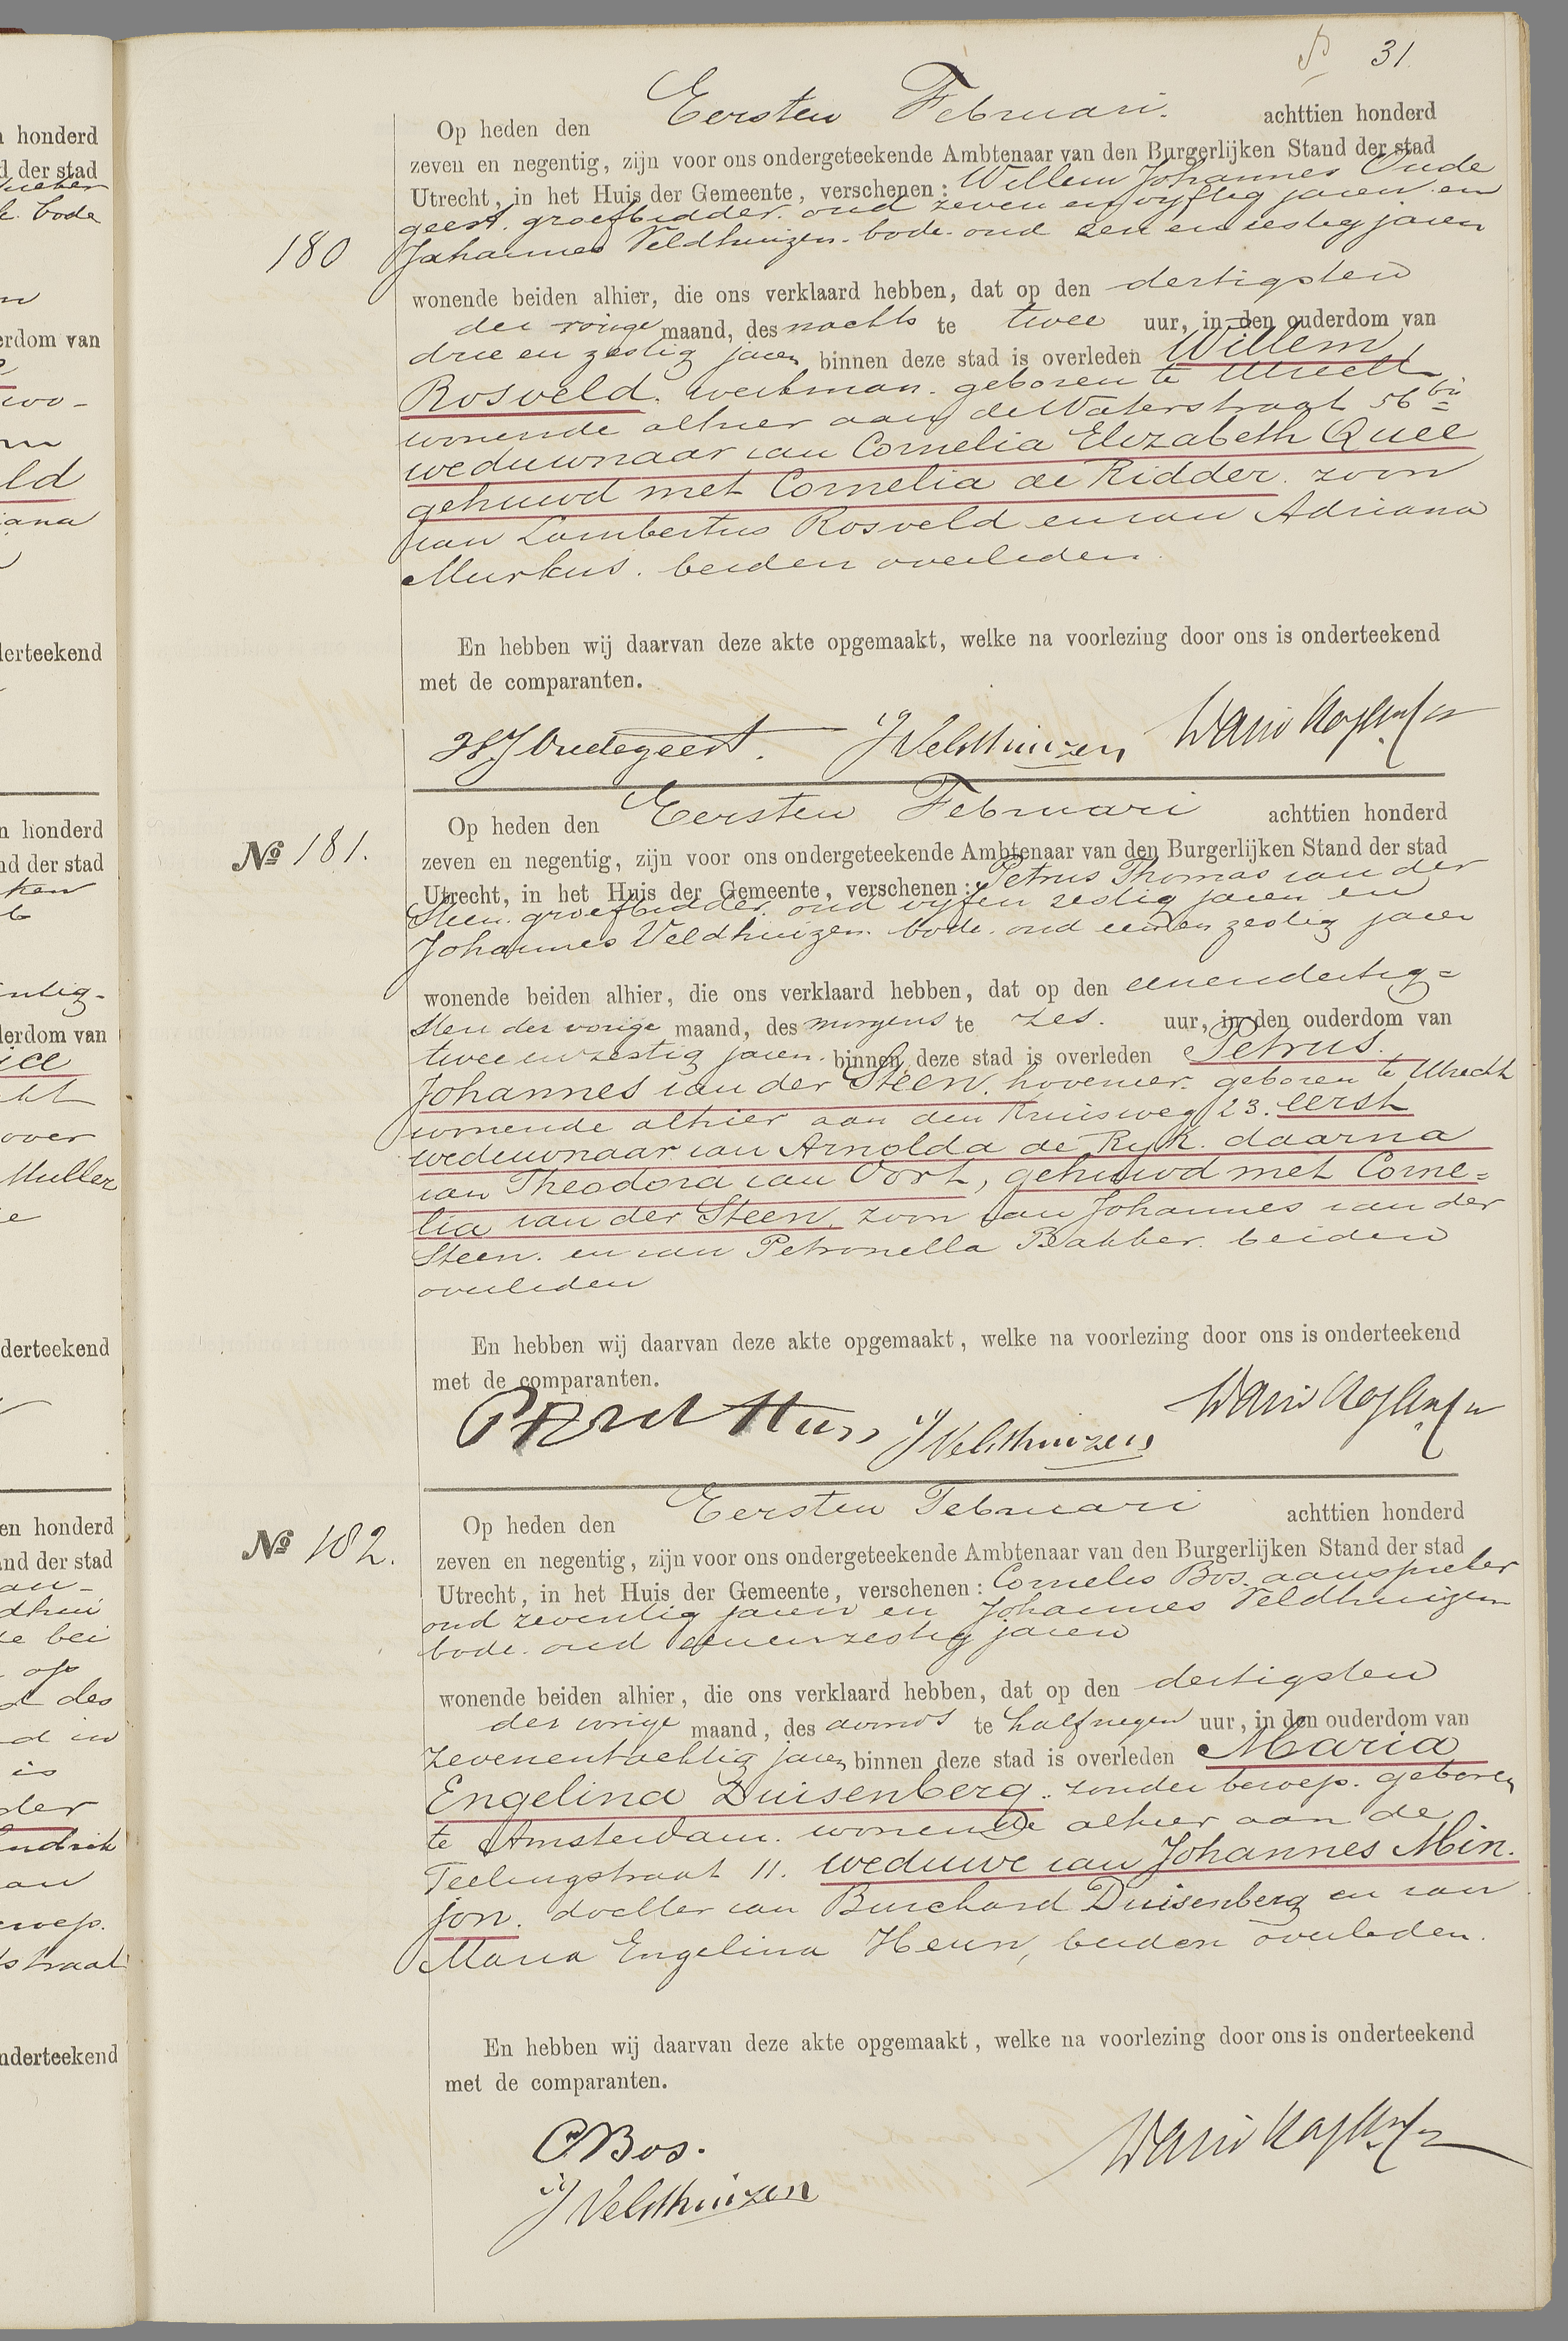 31
Op heden den Eersten Februari. achttien honderd
zeven en negentig, zijn voor ons ondergeteekende Ambtenaar van den Burgerlijken Stand der stad
Utrecht, in het Huis der Gemeente, verschenen: Willem Johannes Oude
geest. groefbidder. oud zeven en vyftig jaren en
180
Johannes Veldhuizen. bode. oud een en zestig jaren
wonende beiden alhier, die ons verklaard hebben, dat op den dertigsten
der vorige maand, des nachts te twee uur, in den ouderdom van
drie en zestig jaren binnen deze stad is overleden Willem
Rosveld. werkman. geboren te Utrecht
wonende alhier aan de Waterstraat 56 bis
weduwnaar van Cornelia Elizabeth Quee
gehuwd met Cornelia de Ridder. zoon
van Lambertus Rosveld en van Adriana
Murkus. beiden overleden.
En hebben wij daarvan deze akte opgemaakt, welke na voorlezing door ons is onderteekend
met de comparanten.
WJ Oudegeest. J Veldhuizen
Op heden den Eersten Februari achttien honderd
No 181.
zeven en negentig, zijn voor ons ondergeteekende Ambtenaar van den Burgerlijken Stand der stad
Utrecht, in het Huis der Gemeente, verschenen: Petrus Thomas van der
Steen. groefbidder. oud vyf en zestig jaren en
Johannes Veldhuizen. bode. oud een en zestig jaren
wonende beiden alhier, die ons verklaard hebben, dat op den eenendertig=
sten der vorige maand, des morgens te zes. uur, in den ouderdom van
twee en zestig jaren. binnen deze stad is overleden Petrus
Johannes van der Steen. hovenier. geboren te Utrecht
wonende alhier aan den Kruisweg 23. eerst
weduwnaar van Arnolda de Ryk. daarna
van Theodora van Oort, gehuwd met Corne=
lia van der Steen. zoon van Johannes van der
Steen. en van Petronella Bakker. beiden
overleden
En hebben wij daarvan deze akte opgemaakt, welke na voorlezing door ons is onderteekend
met de comparanten.
J Veldhuizen
Op heden den Eersten Februari achttien honderd
No 182.
zeven en negentig, zijn voor ons ondergeteekende Ambtenaar van den Burgerlijken Stand der stad
Utrecht, in het Huis der Gemeente, verschenen: Cornelis Bos. aanspreker
oud zeventig jaren en Johannes Veldhuizen
bode. oud eenenzestig jaren
wonende beiden alhier, die ons verklaard hebben, dat op den dertigsten
der vorige maand, des avonds te half negen uur, in den ouderdom van
zevenentachtig jaren binnen deze stad is overleden Maria
Engelina Duisenberg. zonder beroep. geboren
te Amsterdam. wonende alhier aan de
Teelingstraat 11. weduwe van Johannes Min.
jon. dochter van Burchard Duisenberg en van
Maria Engelina Heun, beiden overleden.
En hebben wij daarvan deze akte opgemaakt, welke na voorlezing door ons is onderteekend
met de comparanten.
CBos.
J Veldhuizen